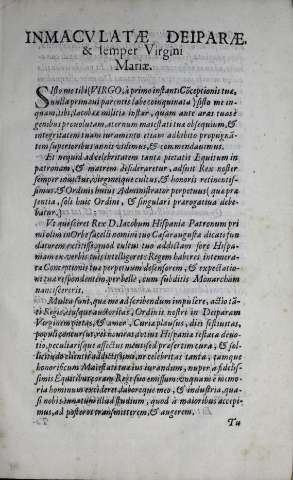 INMACVLATÆ, DEIPARÆ,
& semper Virgini
Mariæ.
Sisto me tibi (VIRGO, à primo instanti Cõceptionis tuæ,
nulla primævi parentis labe coinquinata) sisto me in-
quam, tibi, Iacobææ militiæ instar, quam ante aras tuas
genibus provolutam, æternum maiestati tuæ obsequium, &
integritatem tuam iuramento etiam adhibito propugnã-
tem superioribus annis vidimus, & commendavimus.
Et nequid ad celebritatem tantæ pietatis Equitum in
patronam, & matrem desideraretur, adfuit Rex noster
semper invictus, virgineique cultus, & honoris retinentis-
simus, & Ordinis huius Administrator perpetuus (quo præ-
sentia, soli huic Ordini, & singulari prærogativa debe-
batur.)
Ut quiesceret Rex D. Iacobum Hispaniæ Patronum pri
mũ olim in Orbe sacelli nomini tuo Cæsaraugustæ dicati fun
datorem extitisse, quod cultui tuo addictam fore Hispa-
niam ex verbis tuis intellegeret: Regem haberes intemera-
tæ Conceptionis tuæ perpetuum defensorem, & expectatio-
ni tuæ respondentem, per belle, cum subditis Monarcham
nancisceris.
Multa sunt, quæ me ad scribendum impulere, actio tã-
ti Regis, eiusque auctoritas, Ordinis nostri in Deiparam
Virginem pietas, & amor, Curia plausus, dies festivitas,
populi concursus, rei novitas, divini Hispaniæ testata devo-
tio, peculiarisque affectus mentis ed præsertim cura, & sol-
licitudo clientis addictissimi, ne celebritas tanta, tamque
honorificum Maiestati tuæ ius iurandum, nuper à fidelis-
simis Equitibus coram Rege suo emissum: unquam è memo-
ria hominum excideret, laboreque meo, & industria, qua-
si nobis innatum illud studium, quod à maioribus accepi-
mus, ad posteros transmitterem, & augerem.
Tu